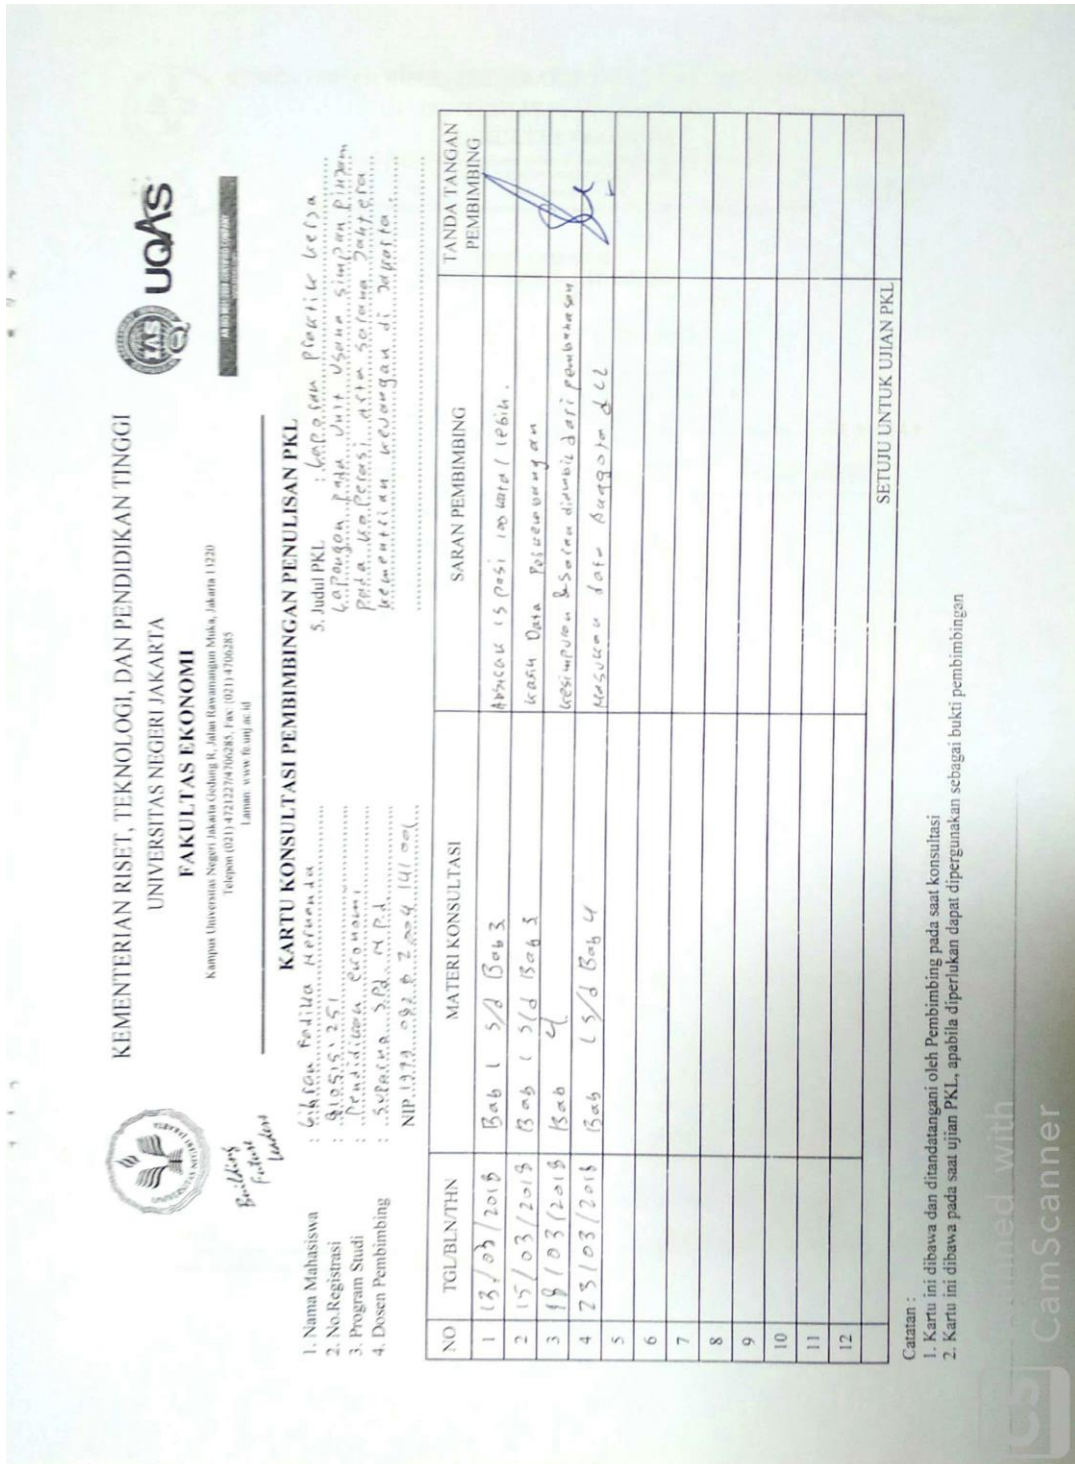 KEMENTERIAN RISET, TEKNOLOGI, DAN PENDIDIKAN TINGGI
UNIVERSITAS NEGERI JAKARTA
FAKULTAS EKONOMI
Kampus Universitas Negeri Jakarta Gedung R, Jalan Rawamangun Muka, Jakarta 13220
Telepon (021) 4721227/4706285, Fax: (021) 4706285
Laman: www.fe.unj.ac.id
Building
Future
Leaders
IAS
UQAS
KARTU KONSULTASI PEMBIMBINGAN PENULISAN PKL
1. Nama Mahasiswa : Fadilla
2. No.Registrasi :
3. Program Studi : Pendidikan ekonomi
4. Dosen Pembimbing : Suparno S.Pd M.Pd
NIP.
5. Judul PKL : Laporan Praktik Kerja
Lapangan pada Unit Usaha Simpan Pinjam
pada Koperasi Sarana
Kementrian Keuangan di Jakarta.
NO TGL/BLN/THN MATERI KONSULTASI SARAN PEMBIMBING TANDA TANGAN PEMBIMBING
1 13/03/2018 Bab 1 s/d Bab 3
2 15/03/2018 Bab 1 s/d Bab 3 Data
3 18/03/2018 Bab 4 Kesimpulan & Saran diambil dari pembahasan
4 23/03/2018 Bab 1 s/d Bab 4 Masukan data Anggota dll
5
6
7
8
9
10
11
12
SETUJU UNTUK UJIAN PKL
Catatan :
1. Kartu ini dibawa dan ditandatangani oleh Pembimbing pada saat konsultasi
2. Kartu ini dibawa pada saat ujian PKL, apabila diperlukan dapat dipergunakan sebagai bukti pembimbingan
CS
Scanned with
CamScanner